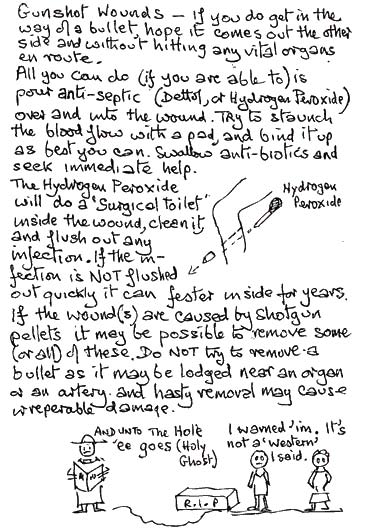 Gunshot Wounds – If you do get in the
way of a bullet, hope it comes out the other
side and without hitting any vital organs
en route.
All you can do (if you are able to) is
pour anti-septic (Dettol, or Hydrogen Peroxide)
over and into the wound. Try to staunch
the blood flow with a pad, and bind it up
as best you can. Swallow anti-biotics and
seek immediate help.
The Hydrogen Peroxide
will do a 'Surgical toilet'
inside the wound, clean it
and flush out any
infection. If the in-
fection is NOT flushed
out quickly it can fester inside for years.
If the wound(s) are caused by Shotgun
pellets it may be possible to remove some
(or all) of these. Do NOT try to remove a
bullet as it may be lodged near an organ
or an artery and hasty removal may cause
irreperable damage.
Hydrogen
Peroxide
AND UNTO The Hole
'ee goes (Holy
Ghost)
I warned 'im. It's
not a 'Western'
I said.
R.I.P